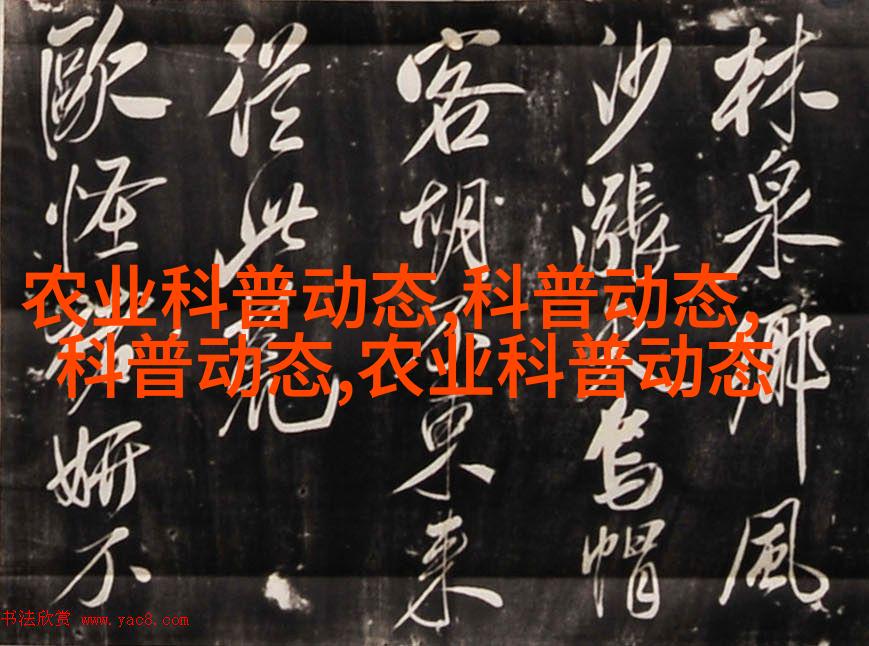 林泉 風
沙漲 烏帽
客胡不東來
從此
歐怪 妍不
农业科普动态,科普动态,
科普动态,农业科普动态
书法欣赏 www.yac8.com